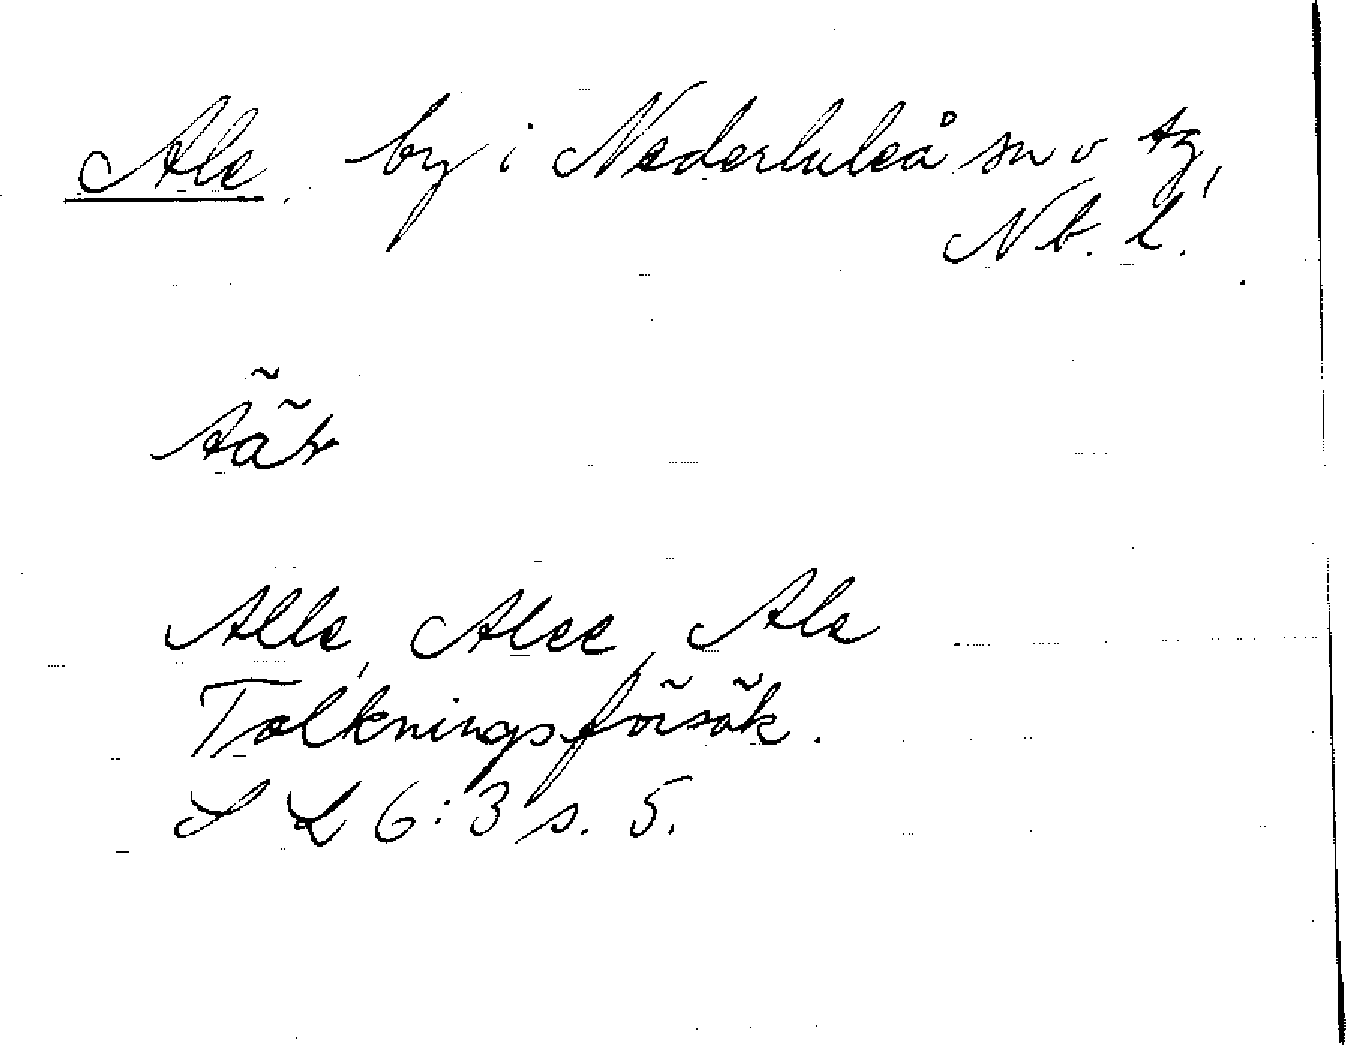 Ale. by i Nederluleå sn o tg,
Nb. l.
Alle, Alee, Ale
Tolkningsförsök.
S L 6:3 s. 5.